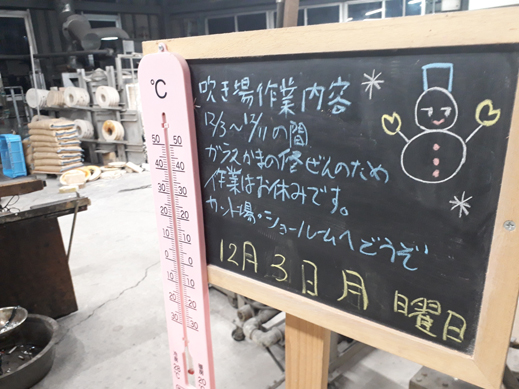 吹き場作業内容
12/3～12/11の間
ガラスがまの修ぜんのため
作業はお休みです。
カット場・ショールームへどうぞ
12月3日月曜日
℃
50 50
40 40
30 30
20 20
10 10
0 0
10 10
20 20
30 30